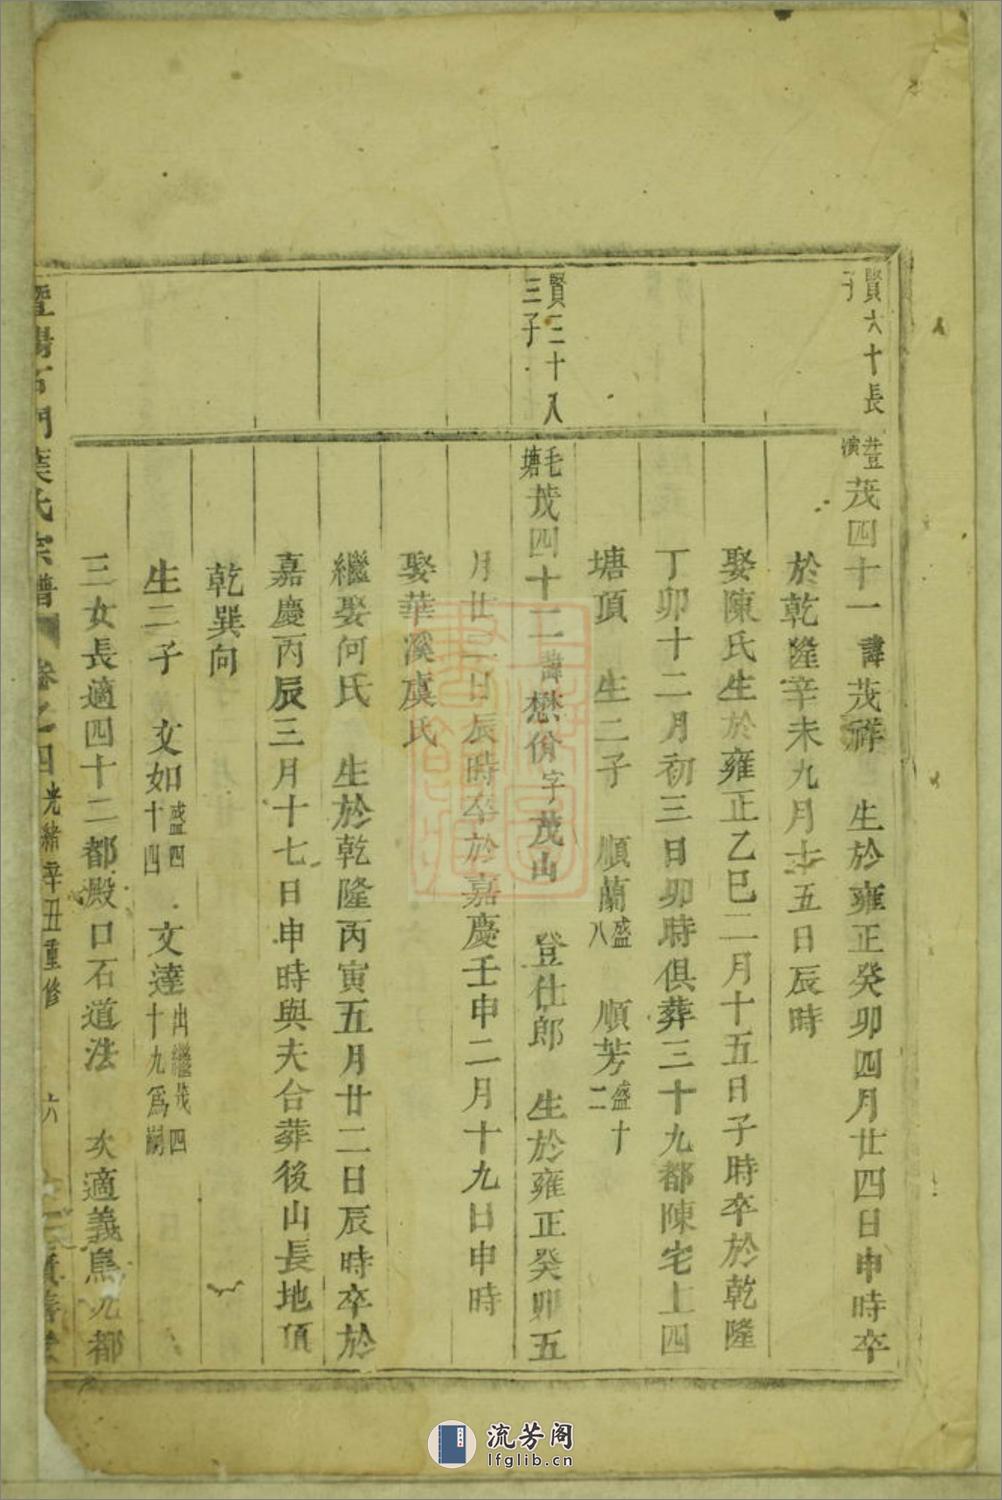 賢六十長
子
豊
演
茂四十一 諱茂祥 生於雍正癸卯四月廿四日申時卒
於乾隆辛未九月十五日辰時
娶陳氏生於雍正乙巳二月十五日子時卒於乾隆
丁卯十二月初三日卯時俱葬三十九都陳宅上四
塘頂 生二子 順蘭盛八 順芳盛十二
賢三十八
三子
毛
塘
茂四十二 諱懋份字茂山 登仕郎 生於雍正癸卯五
月廿一日辰時卒於嘉慶壬申二月十九日申時
娶華溪虞氏
繼娶何氏 生於乾隆丙寅五月廿二日辰時卒於
嘉慶丙辰三月十七日申時與夫合葬後山長地頂
乾巽向
生二子 文如盛四十四 文達出繼茂四十九爲嗣
三女長適四十二都殿口石道法 次適義烏九都
暨陽石門葉氏宗譜 卷之四 光緒辛丑重修 六
流芳阁
lfglib.cn